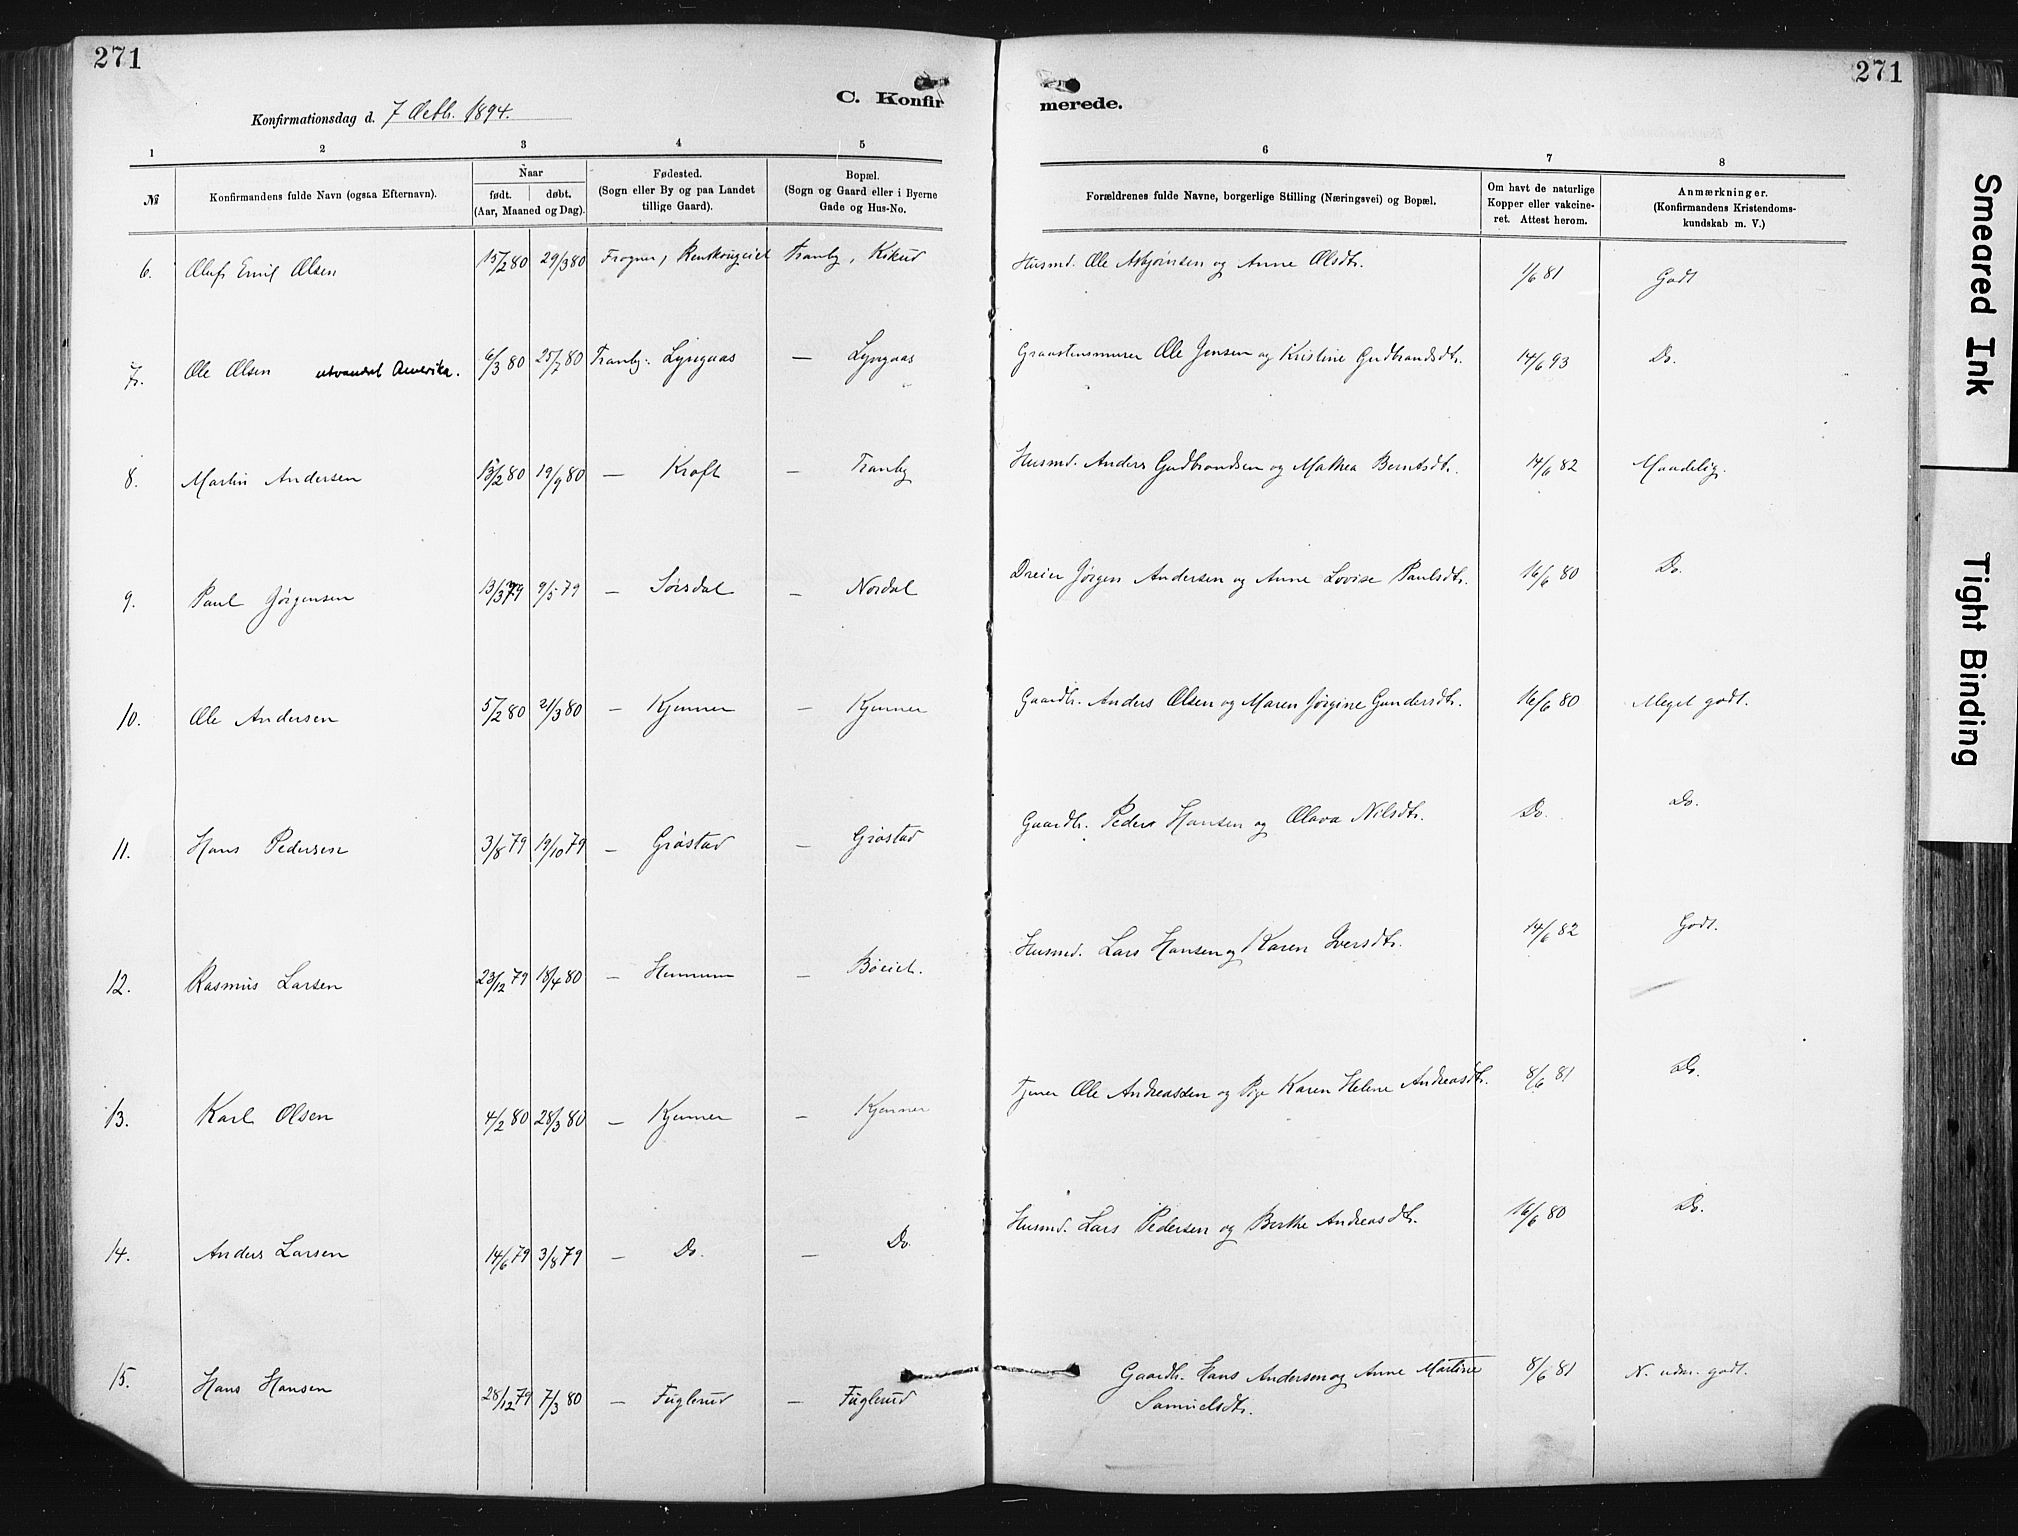 271
271
C. Konfir
merede.
Konfirmationsdag d. 7 Octb. 1894.
1 2 3 4 5 6 7 8
№
Konfirmandens fulde Navn (ogsaa Efternavn).
Naar
født. døbt.
(Aar, Maaned og Dag).
Fødested.
(Sogn eller By og paa Landet
tillige Gaard).
Bopæl.
(Sogn og Gaard eller i Byerne
Gade og Hus-No.
Forældrenes fulde Navne, borgerlige Stilling (Næringsvei) og Bopæl.
Om havt de naturlige
Kopper eller vakcine-
ret. Attest herom.
Anmærkninger.
(Konfirmandens Kristendoms-
kundskab m. V.)
6. Oluf Emil Olsen 15/2 80 29/3 80 Frogner, Tranby, Kikud Husmd. Ole Asbjørnsen og Anne Olsdtr. 1/6 81 Godt
7. Ole Olsen utvandret Amerika. 6/3 80 25/7 80 Tranby. Lyngaas — Lyngaas Graastensmurer Ole Jensen og Kristine Gudbrandsdtr. 14/6 93 Do.
8. Martin Andersen 13/2 80 19/9 80 — Kraft — Tranby Husmd. Anders Gudbrandsen og Mathea Berntsdtr. 14/6 82 Maadelig.
9. Paul Jørgensen 13/3 79 9/5 79 — Sørsdal — Nordal Dreier Jørgen Andersen og Anne Lovise Paulsdtr. 16/6 80 Do.
10. Ole Andersen 5/2 80 21/3 80 — Kjenner — Kjenner Gaardbr. Anders Olsen og Maren Jørgine Gundersdtr. 16/6 80 Meget godt.
11. Hans Pedersen 3/8 79 19/10 79 — Grøstad — Grøstad Gaardbr. Peder Hansen og Olava Nilsdtr. Do. Do.
12. Rasmus Larsen 23/12 79 18/4 80 — Hennum — Bøeiet. Husmd. Lars Hansen og Karen Iversdtr. 14/6 82 Godt.
13. Karl Olsen 4/2 80 28/3 80 — Kjenner — Kjenner Tjener Ole Andreassen og Pige Karen Helene Andreasdtr. 8/6 81 Do.
14. Anders Larsen 14/6 79 3/8 79 — Do. — Do. Husmd. Lars Pedersen og Berthe Andreasdtr. 16/6 80 Do.
15. Hans Hansen 28/12 79 7/3 80 — Fuglerud — Fuglerud Gaardbr. Hans Andersen og Anne Martine 8/6 81 N. udm. godt.
Samuelsdtr.
Smeared Ink
Tight Binding